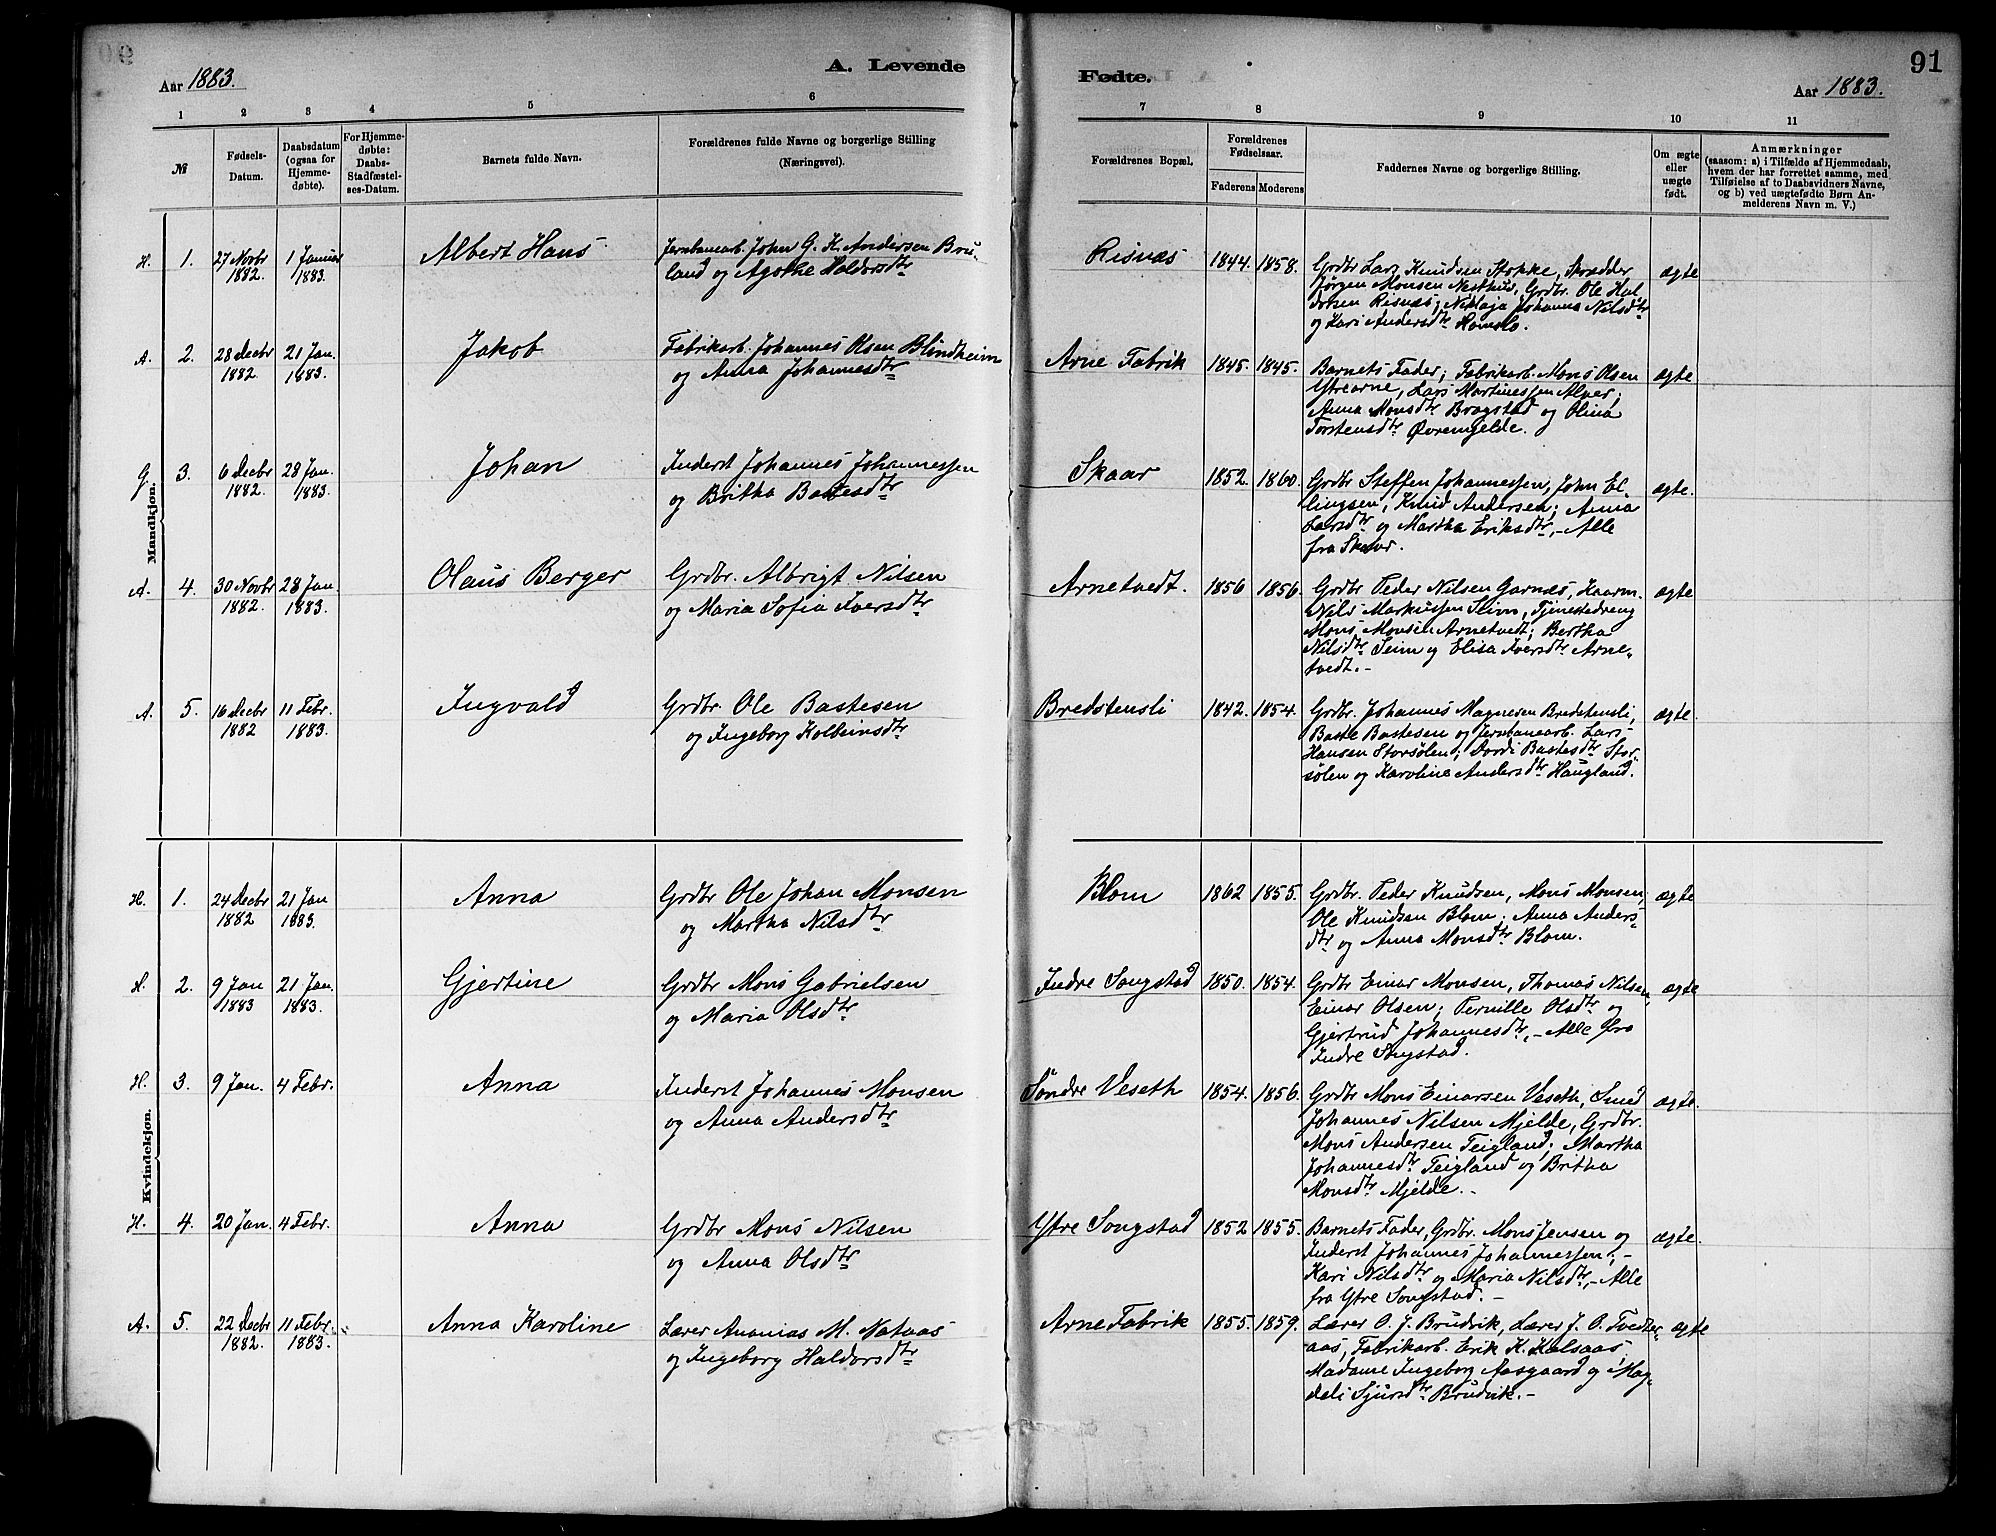 91
Aar 1883.
A. Levende
Fødte.
Aar 1883.
1 2 3 4 5 6 7 8 9 10 11
№
Fødsels-
Datum.
Daabsdatum
(ogsaa for
Hjemme-
døbte).
For Hjemme-
døbte:
Daabs-
Stadfæstel-
ses-Datum.
Barnets fulde Navn.
Forældrenes fulde Navne og borgerlige Stilling
(Næringsvei).
Forældrenes Bopæl.
Forældrenes
Fødselsaar.
Faderens Moderens
Faddernes Navne og borgerlige Stilling.
Om ægte
eller
uægte
født.
Anmærkninger
(saasom: a) i Tilfælde af Hjemmedaab,
hvem der har forrettet samme, med
Tilføielse af to Daabsvidners Navne,
og b) ved uægtefødte Børn An-
melderens Navn m. V.)
Mandkjøn.
H. 1. 27 Novbr 1882. 1 Januar 1883.
Albert Hans
Jernbanearb. John G. K. Andersen Bru-
land og Agathe Haldorsdtr
Risnæs 1844. 1858.
Grdbr Lars Knudsen Stokke, Skrædder
Jørgen Monsen Nesthus, Grdbr. Ole Hal-
dorsen Risnæs; Nikolaja Johanna Nilsdtr
og Kari Andersdtr Hamslo.
ægte
A. 2. 28 Decbr 1882. 21 Jan. 1883.
Jakob
Fabrikarb. Johannes Olsen Blindheim
og Anna Johannesdtr
Arne Fabrik 1845. 1845.
Barnets Fader; Fabrikarb. Mons Olsen
Ytrearne, Lars Martinessen Alver;
Anna Monsdtr Brogstad og Olina
Torstensdtr Øvremjelde.
ægte
G. 3. 6 Decbr 1882. 28 Jan. 1883.
Johan
Inderst Johannes Johannessen
og Britha Bastesdtr
Skaar 1852. 1860.
Grdbr Steffen Johannessen, John El-
lingsen, Knud Andersen; Anna
Larsdtr og Martha Eriksdtr, - Alle
fra Skaar.
ægte.
A. 4. 30 Novbr 1882. 28 Jan 1883.
Olaus Berger
Grdbr. Albrigt Nilsen
og Maria Sofia Iversdtr
Arnetvedt. 1856 1856.
Grdbr Peder Nilsen Garnæs, Kaarm.
Nils Markussen Seim, Tjenestedreng
Mons Monsen Arnetvedt; Bertha
Nilsdtr Seim og Elisa Iversdtr Arne-
tvedt. -
ægte
A. 5. 16 Decbr 1882 11 Febr. 1883.
Ingvald
Grdbr. Ole Bastesen
og Ingeborg Kolbeinsdtr
Bredstensli 1842. 1854.
Grdbr. Johannes Magnesen Bredstensli,
Baste Bastesen og Jernbanearb. Lars
Hansen Storsølen; Dordi Bastesdtr Stor-
sølen og Karoline Andersdtr Haugland.
ægte.
Kvindekjøn.
H. 1. 24 Decbr 1882 21 Jan 1883.
Anna
Grdbr Ole Johan Monsen
og Martha Nilsdtr
Blom 1862 1855.
Grdbr. Peder Knudsen, Mons Monsen,
Ole Knudsen Blom; Anna Anders-
dtr og Anna Monsdtr Blom.
ægte
H. 2. 9 Jan 1883 21 Jan. 1883.
Gjertine
Grdbr Mons Gabrielsen
og Maria Olsdtr
Indre Songstad 1850. 1854.
Grdbr Einar Monsen, Thomas Nilsen,
Einar Olsen; Pernille Olsdtr og
Gjertrud Johannesdtr, - Alle fra
Indre Songstad.
ægte
H. 3. 9 Jan. 4 Febr.
Anna
Inderst Johannes Monsen
og Anna Andersdtr
Søndre Veseth 1854. 1856.
Grdbr Mons Einarsen Veseth, Smed
Johannes Nilsen Mjelde, Grdbr.
Mons Andersen Teigland; Martha
Johannesdtr Teigland og Britha
Monsdtr Mjelde. -
ægte.
H. 4. 20 Jan. 4 Febr.
Anna
Grdbr Mons Nilsen
og Anna Olsdtr
Ytre Songstad 1852 1855.
Barnets Fader, Grdbr. Mons Jensen og
Inderst Johannes Johannessen; -
Kari Nilsdtr og Maria Nilsdtr, - Alle
fra Ytre Songstad. -
ægte.
A. 5. 22 Decbr 1882. 11 Febr. 1883.
Anna Karoline
Lærer Ananias M. Nataas
og Ingeborg Haldorsdtr
Arne Fabrik 1855. 1859.
Lærer O. J. Brudvik, Lærer J. O. Tvedter-
aas, Fabrikarb. Erik K. Kalsaas;
Madame Ingeborg Aasgaard og Mag-
deli Sjursdtr Brudvik. -
ægte